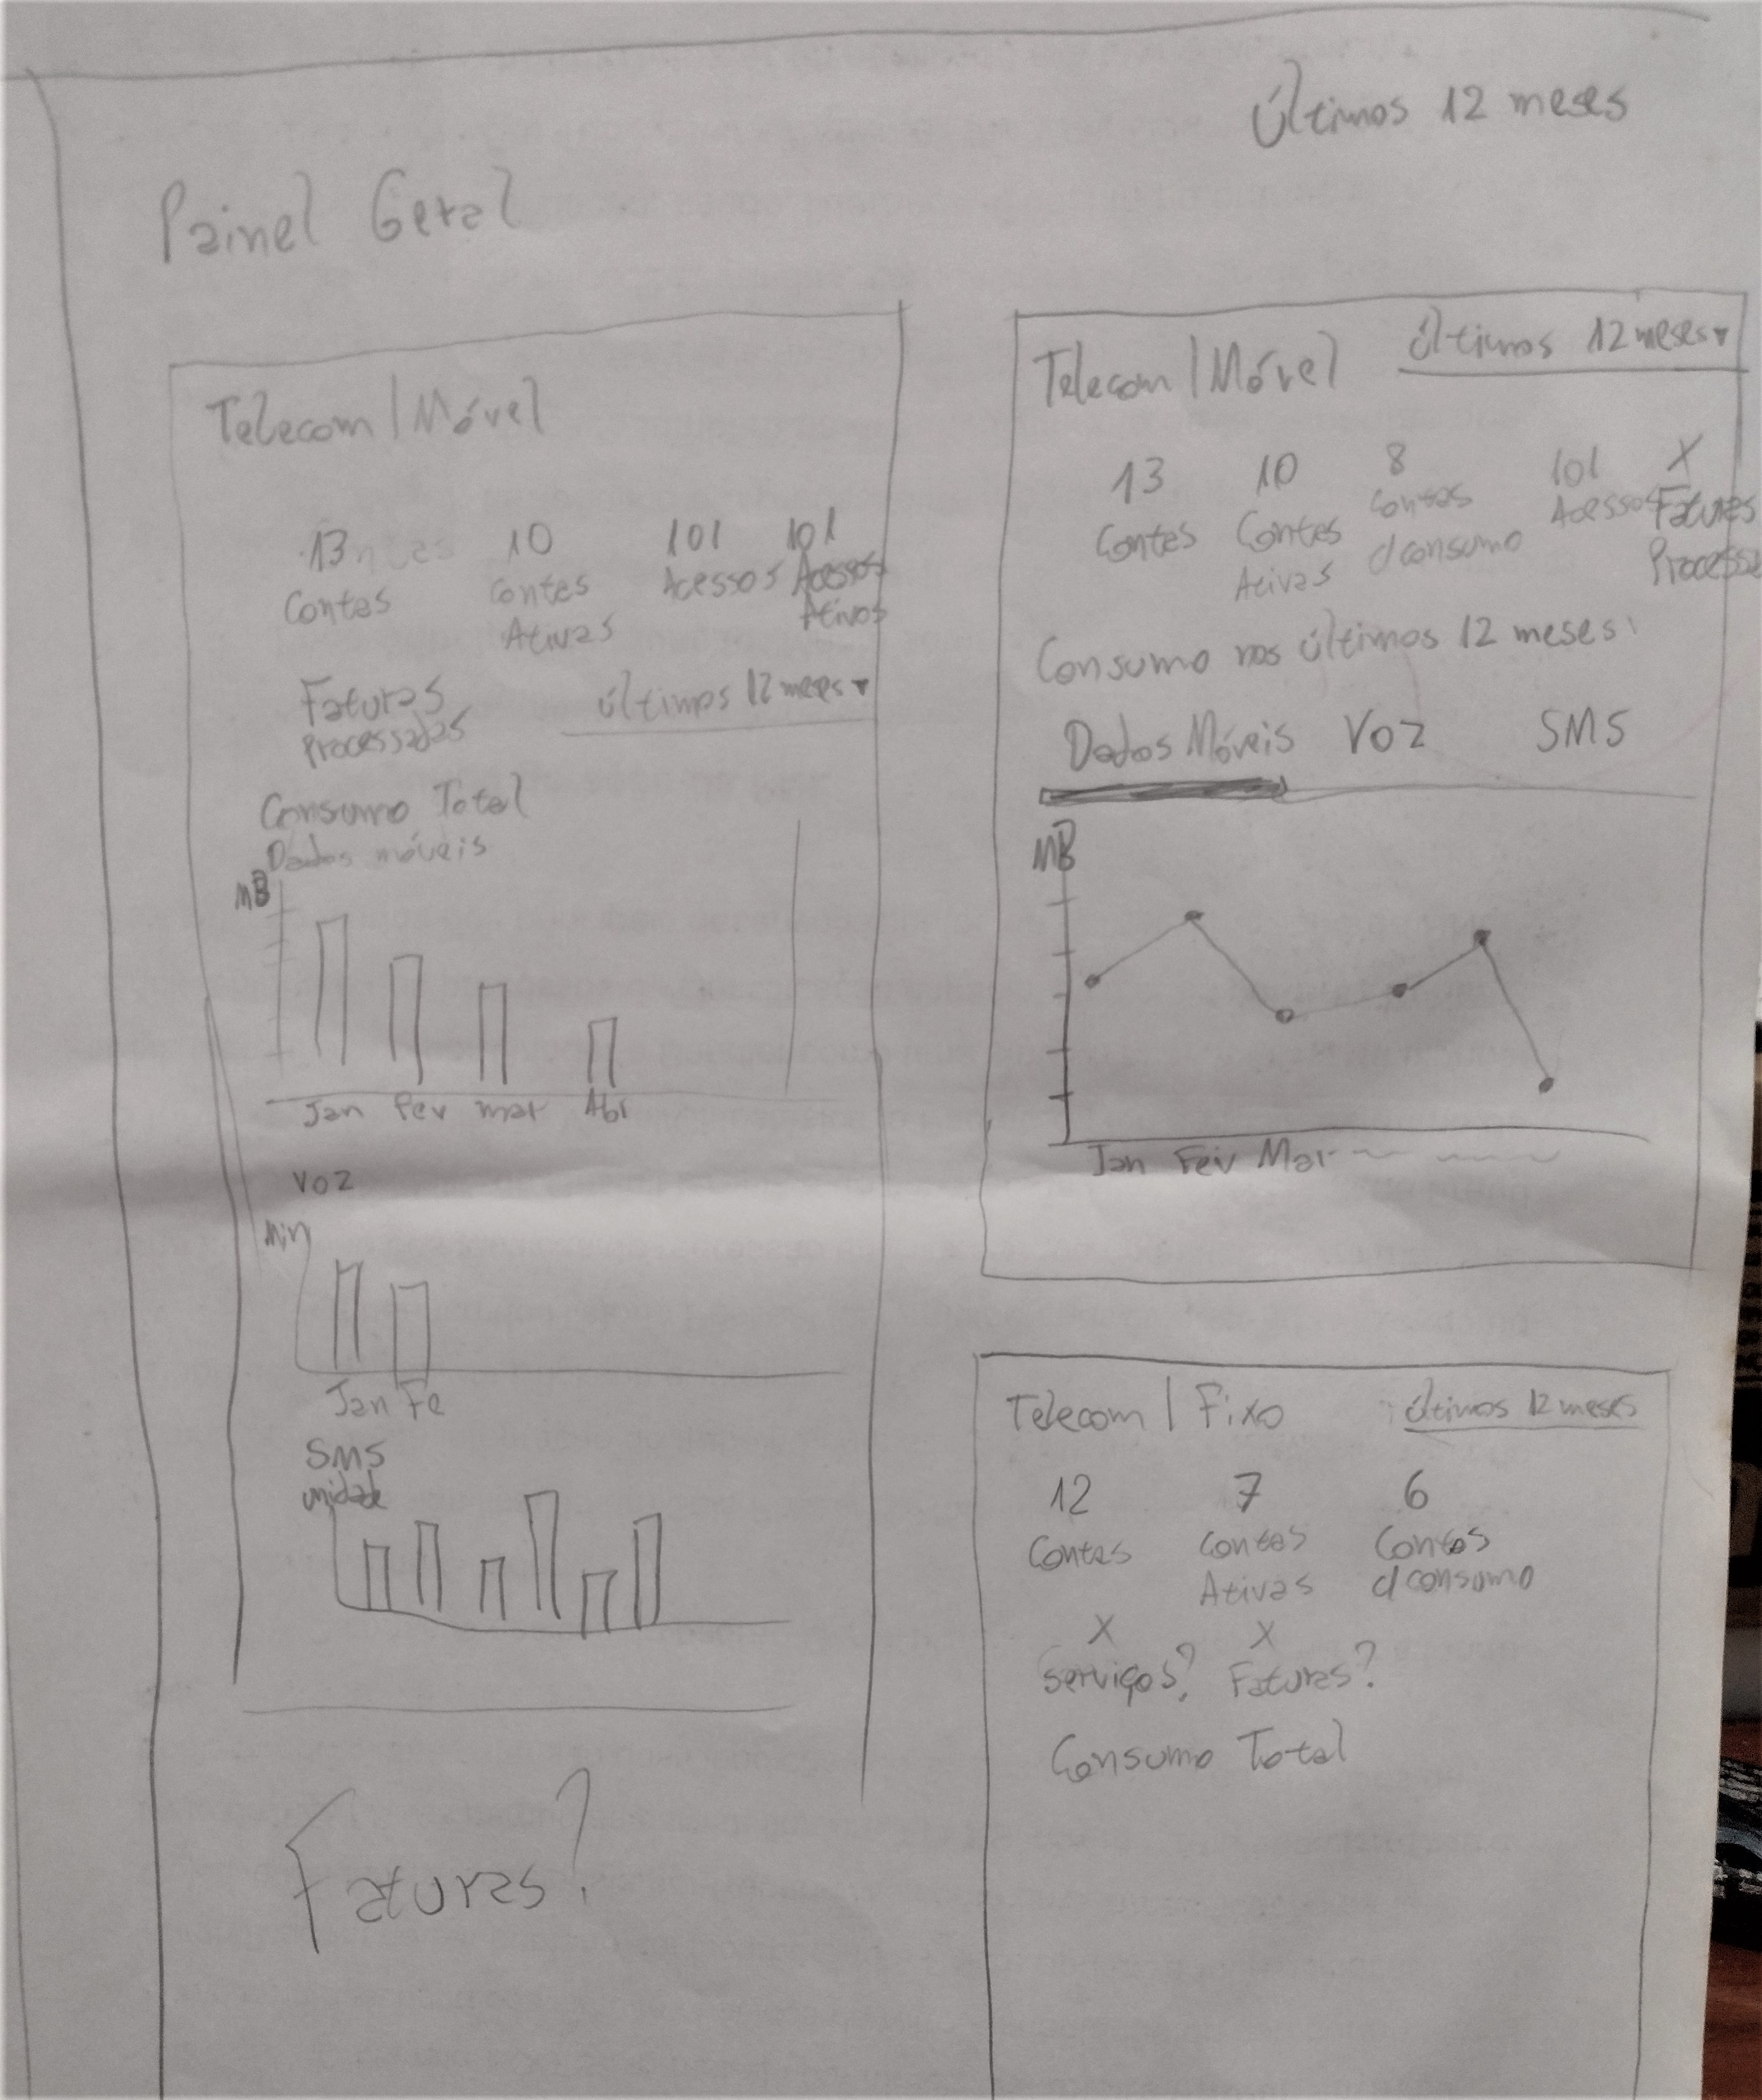 Últimos 12 meses
Painel Geral
Telecom | Móvel
13 10 101 101
Contas Contas Ativas Acessos Acessos Ativos
Faturas Processadas
Últimos 12 meses ▾
Consumo Total
Dados móveis
MB
Jan Fev Mar Abr
Voz
Min
Jan Fe
SMS
unidade
Faturas?
Telecom | Móvel
Últimos 12 meses ▾
13 10 8 101 X
Contas Contas Ativas Contas c/consumo Acessos Faturas Processa
Consumo nos últimos 12 meses
Dados Móveis Voz SMS
MB
Jan Fev Mar
Telecom | Fixo
Últimos 12 meses
12 7 6
Contas Contas Ativas Contas c/consumo
X X
serviços? Faturas?
Consumo Total